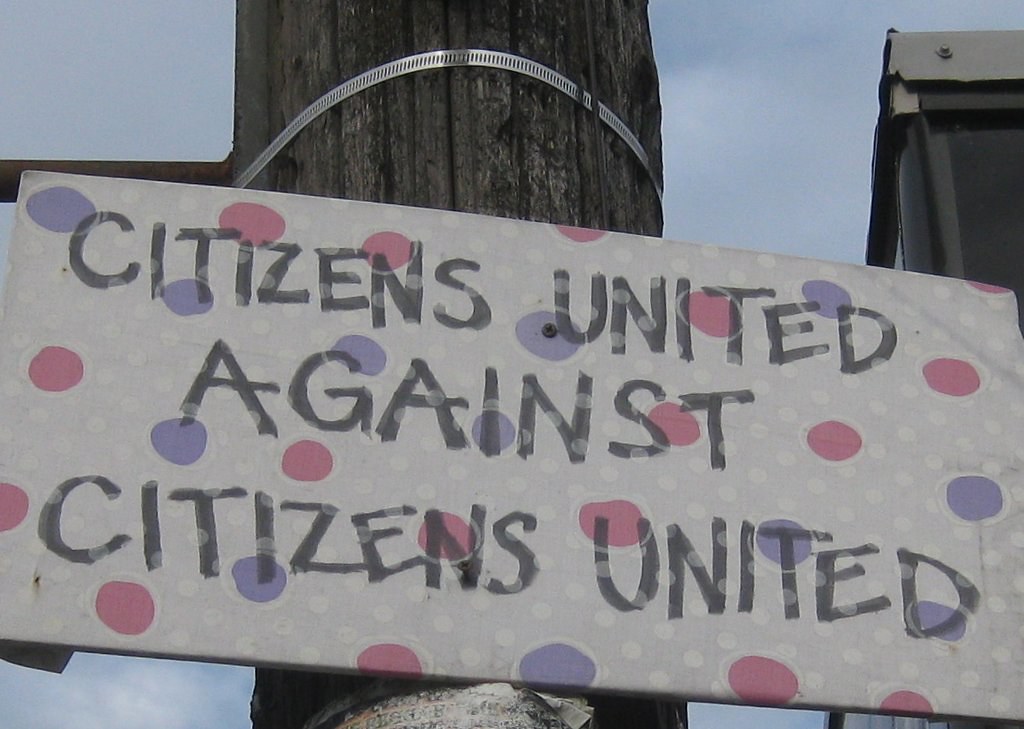 CITIZENS UNITED
AGAINST
CITIZENS UNITED